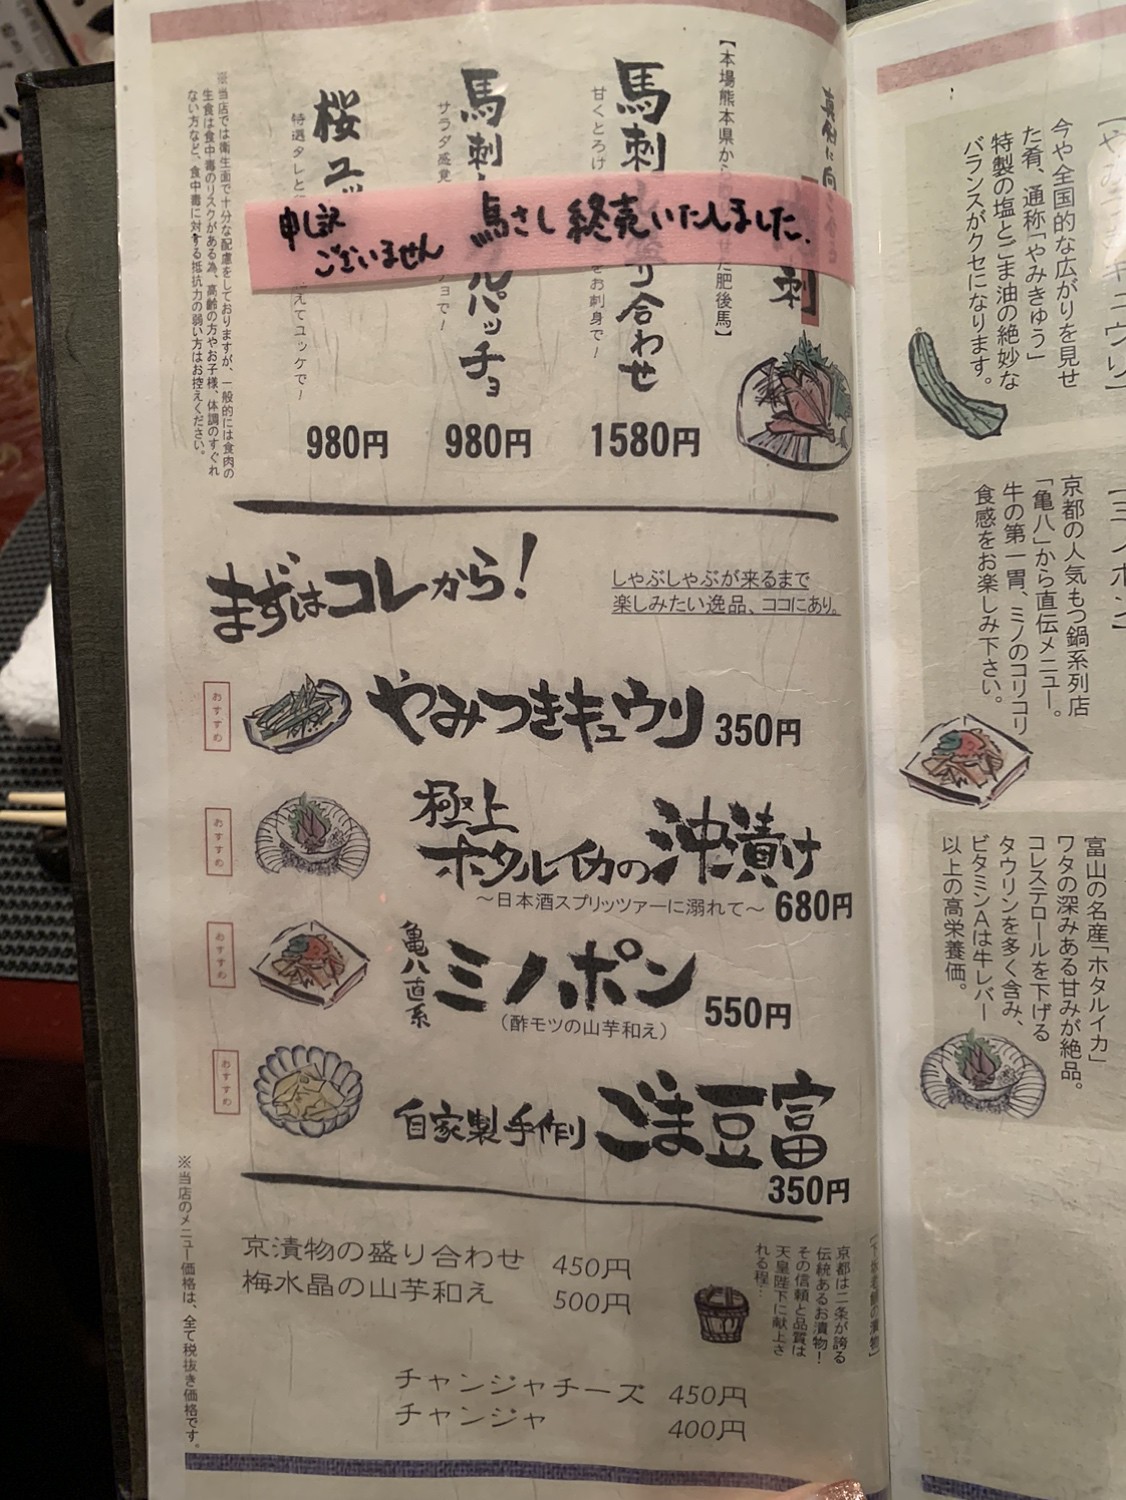 【本場熊本県から
せた肥後馬】
刺
馬刺し盛り合わせ
甘くとろけ
をお刺身で！
1580円
馬刺しカルパッチョ
サラダ感覚
ョで！
980円
桜ユッ
特選タレと
えてユッケで！
980円
申し訳
ございません
馬さし終売いたしました。
※当店では衛生面で十分な配慮をしておりますが、一般的には食肉の
生食は食中毒のリスクがある為、高齢の方やお子様、体調のすぐれ
ない方など、食中毒に対する抵抗力の弱い方はお控えください。
まずはコレから！
しゃぶしゃぶが来るまで
楽しみたい逸品、ココにあり。
おすすめ
やみつきキュウリ 350円
おすすめ
極上
ホタルイカの沖漬け
～日本酒スプリッツァーに溺れて～ 680円
おすすめ
亀八直系
ミノポン
（酢モツの山芋和え） 550円
おすすめ
自家製手作り ごま豆富
350円
京漬物の盛り合わせ 450円
梅水晶の山芋和え 500円
京都は二条が誇る
伝統あるお漬物！
その信頼と品質は
天皇陛下に献上さ
れる程…
チャンジャチーズ 450円
チャンジャ 400円
※当店のメニュー価格は、全て税抜き価格です。
今や全国的な広がりを見せ
た肴、通称「やみきゅう」
特製の塩とごま油の絶妙な
バランスがクセになります。
【ミノポン】
京都の人気もつ鍋系列店
「亀八」から直伝メニュー。
牛の第一胃、ミノのコリコリ
食感をお楽しみ下さい。
富山の名産「ホタルイカ」
ワタの深みある甘みが絶品。
コレステロールを下げる
タウリンを多く含み、
ビタミンAは牛レバー
以上の高栄養価。